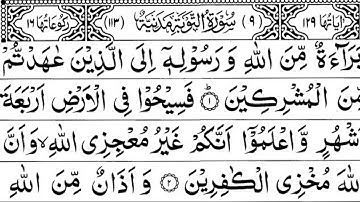 اٰیاتها ١٢٩ (٩) سُوْرَةُ التَّوْبَةِ مَدَنِيَّةٌ (١١٣) رکوعاتها ١٦
بَرَآءَةٌ مِّنَ اللّٰهِ وَ رَسُوْلِهٖۤ اِلَى الَّذِيْنَ عٰهَدْتُّمْ
مِّنَ الْمُشْرِكِيْنَ ۝١ فَسِيْحُوْا فِى الْاَرْضِ اَرْبَعَةَ
اَشْهُرٍ وَّ اعْلَمُوْۤا اَنَّكُمْ غَيْرُ مُعْجِزِى اللّٰهِ ۙ وَ اَنَّ
اللّٰهَ مُخْزِى الْكٰفِرِيْنَ ۝٢ وَ اَذَانٌ مِّنَ اللّٰهِ